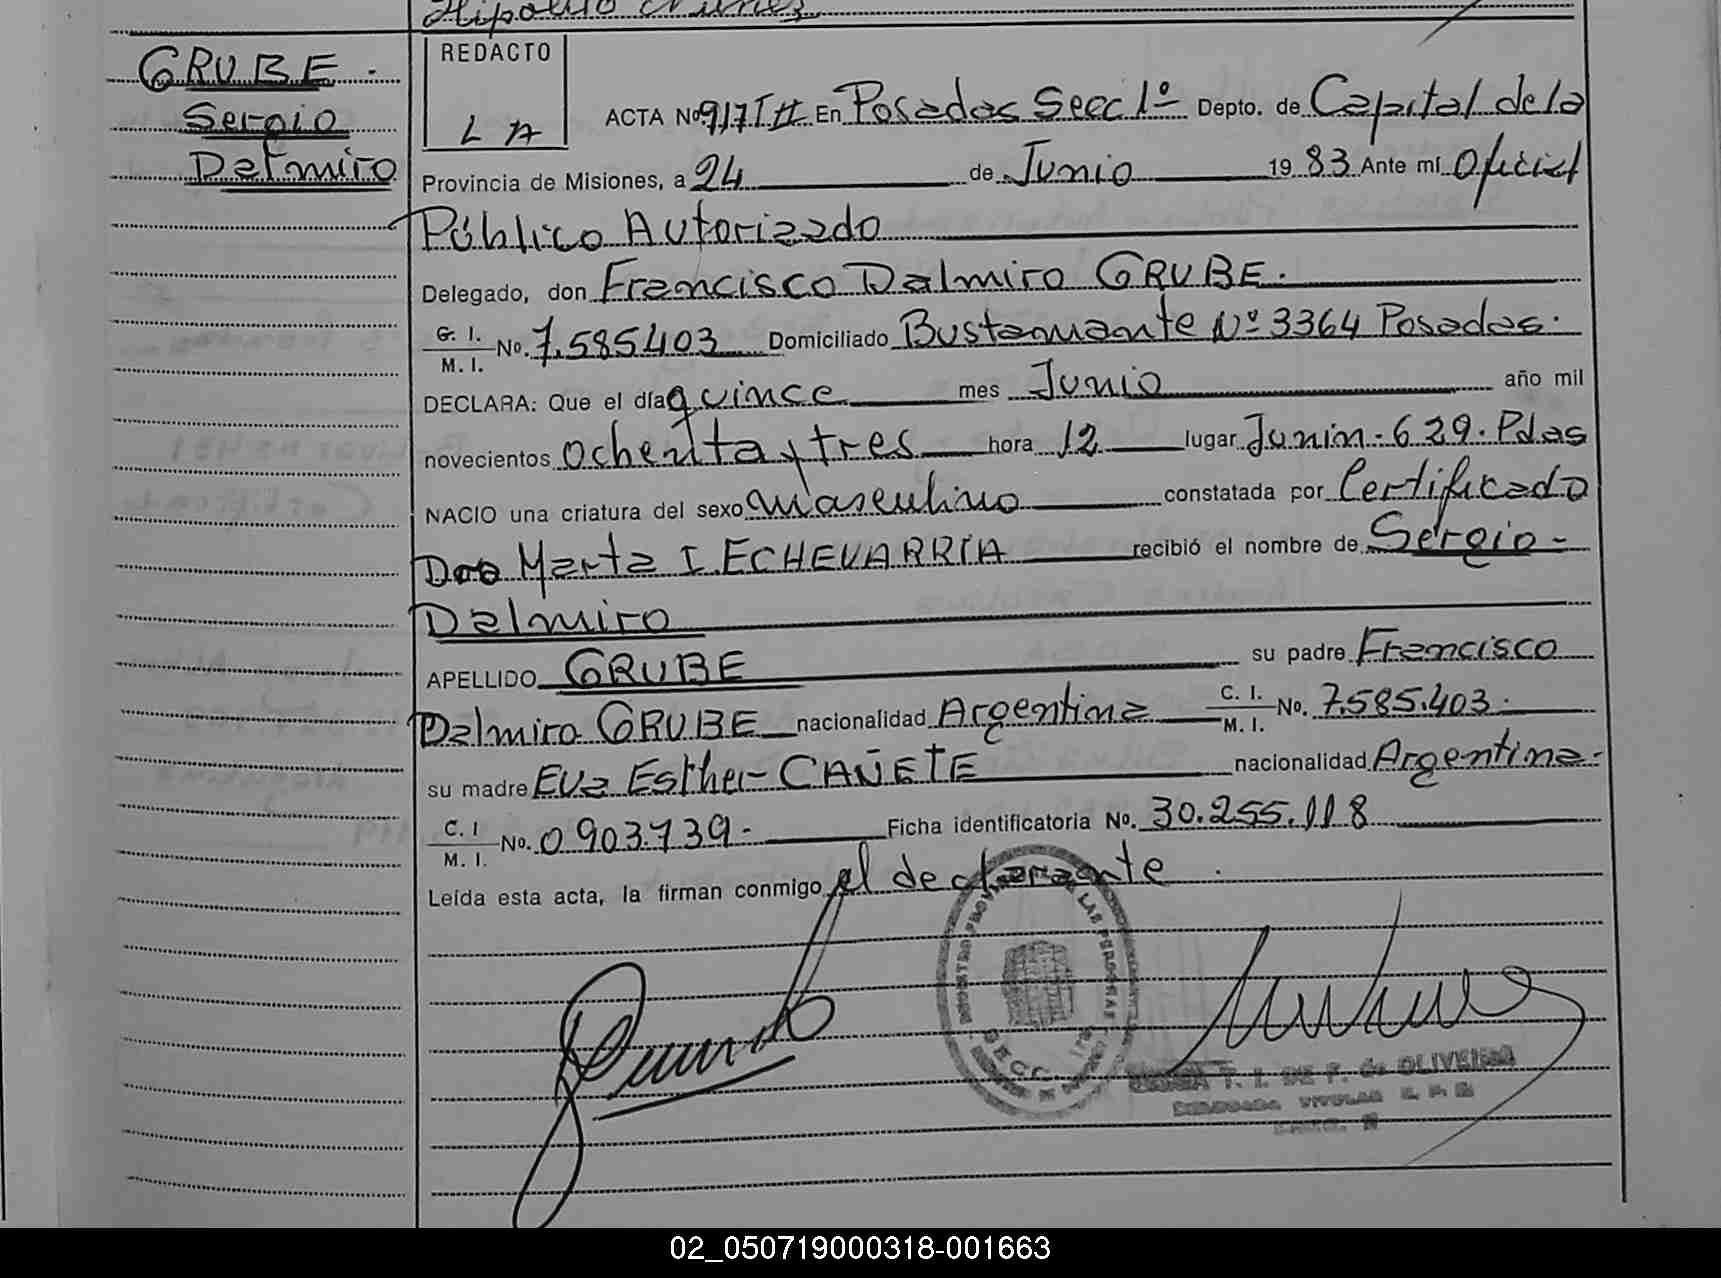 Hipolito Nuñez
GRUBE.
Sergio
Dalmiro
REDACTO
L A
ACTA No. 917 I II En Posadas Secc 1º Depto. de Capital de la
Provincia de Misiones, a 24 de Junio 1983 Ante mí Oficial
Público Autorizado
Delegado, don Francisco Dalmiro GRUBE.
C. I.
M. I. No. 7.585.403 Domiciliado Bustamante Nº 3364 Posadas.
DECLARA: Que el día quince mes Junio año mil
novecientos ochenta y tres hora 12 lugar Junin. 629. Pdas
NACIO una criatura del sexo masculino constatada por Certificado
Dra Marta I ECHEVARRIA recibió el nombre de Sergio-
Dalmiro
APELLIDO GRUBE su padre Francisco
Dalmiro GRUBE nacionalidad Argentina C. I.
M. I. No. 7.585.403.
su madre Eva Esther CAÑETE nacionalidad Argentina-
C. I
M. I. No. 0903.739- Ficha identificatoria No. 30.255.118
Leída esta acta, la firman conmigo el declarante.
SECC. 1ra
T. I. DE F. de OLIVEIRA
TITULAR
02_050719000318-001663